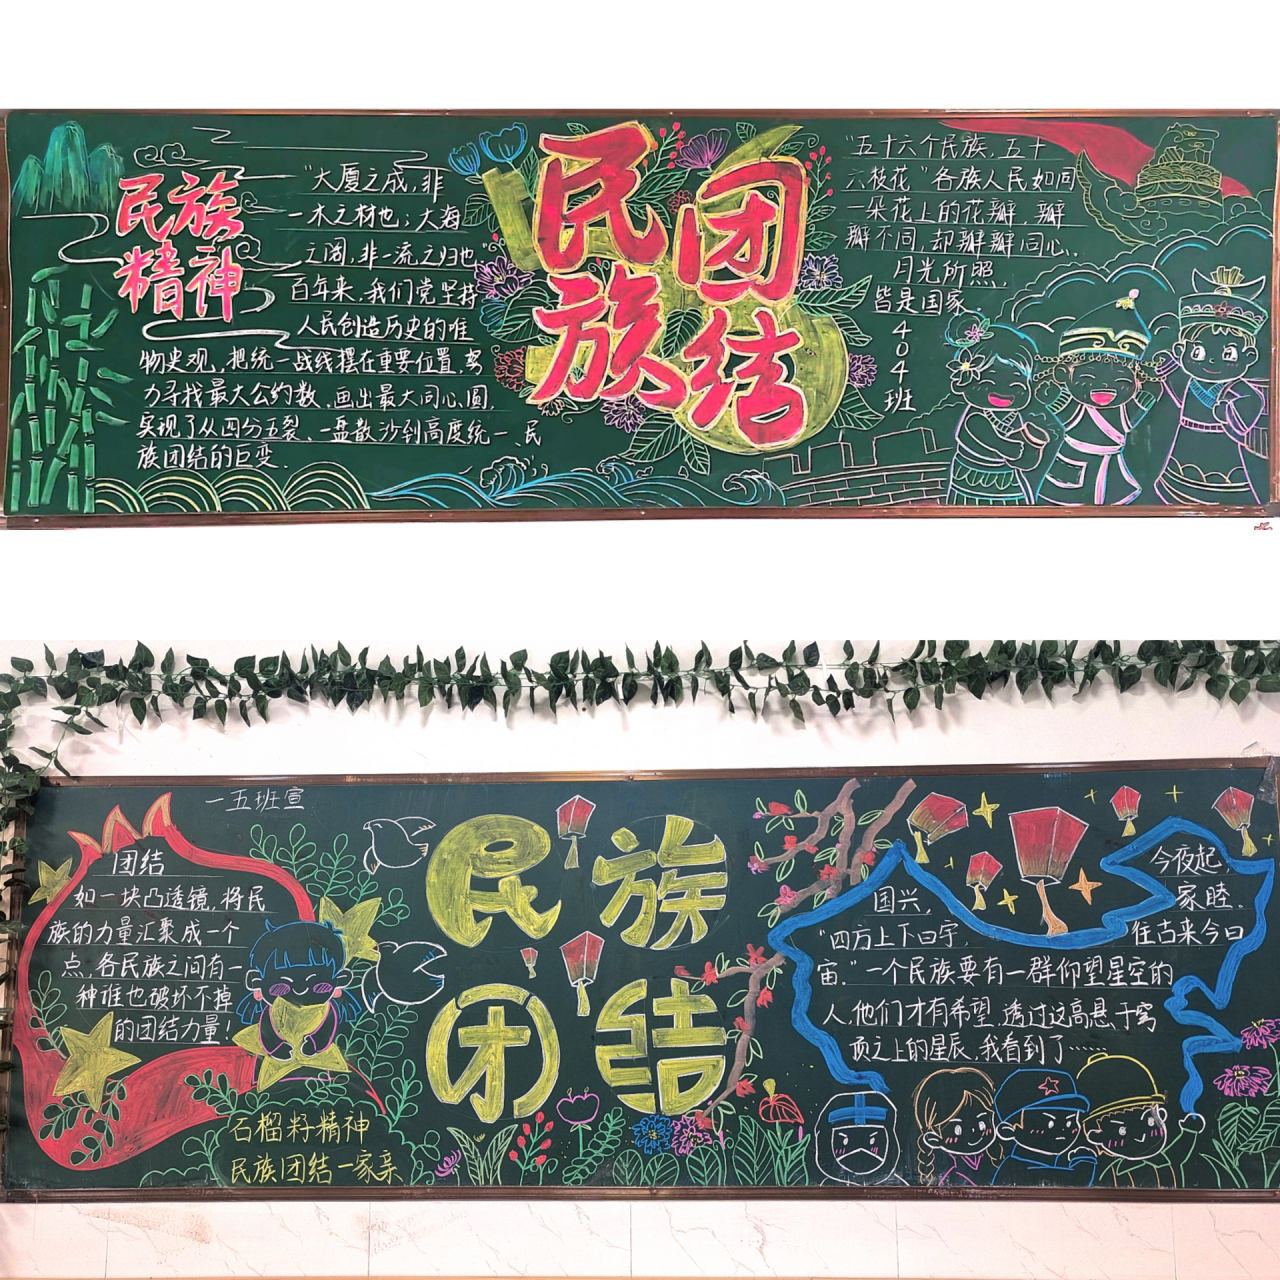 民族
精神
"大厦之成,非
一木之材也;大海
之阔,非一流之归也"
百年来,我们党坚持
人民创造历史的唯
物史观,把统一战线摆在重要位置,努
力寻找最大公约数,画出最大同心圆,
实现了从四分五裂、一盘散沙到高度统一、民
族团结的巨变.
民族
团结
"五十六个民族,五十
六枝花"各族人民如同
一朵花上的花瓣,瓣
瓣不同,却瓣瓣同心、
月光所照,
皆是国家
404班
一五班宣
团结
如一块凸透镜,将民
族的力量汇聚成一个
点,各民族之间有一
种谁也破坏不掉
的团结力量!
石榴籽精神
民族团结一家亲
民族
团结
今夜起,
国兴,家睦.
"四方上下曰宇,往古来今曰
宙."一个民族要有一群仰望星空的
人,他们才有希望,透过这高悬于穹
顶之上的星辰,我看到了……